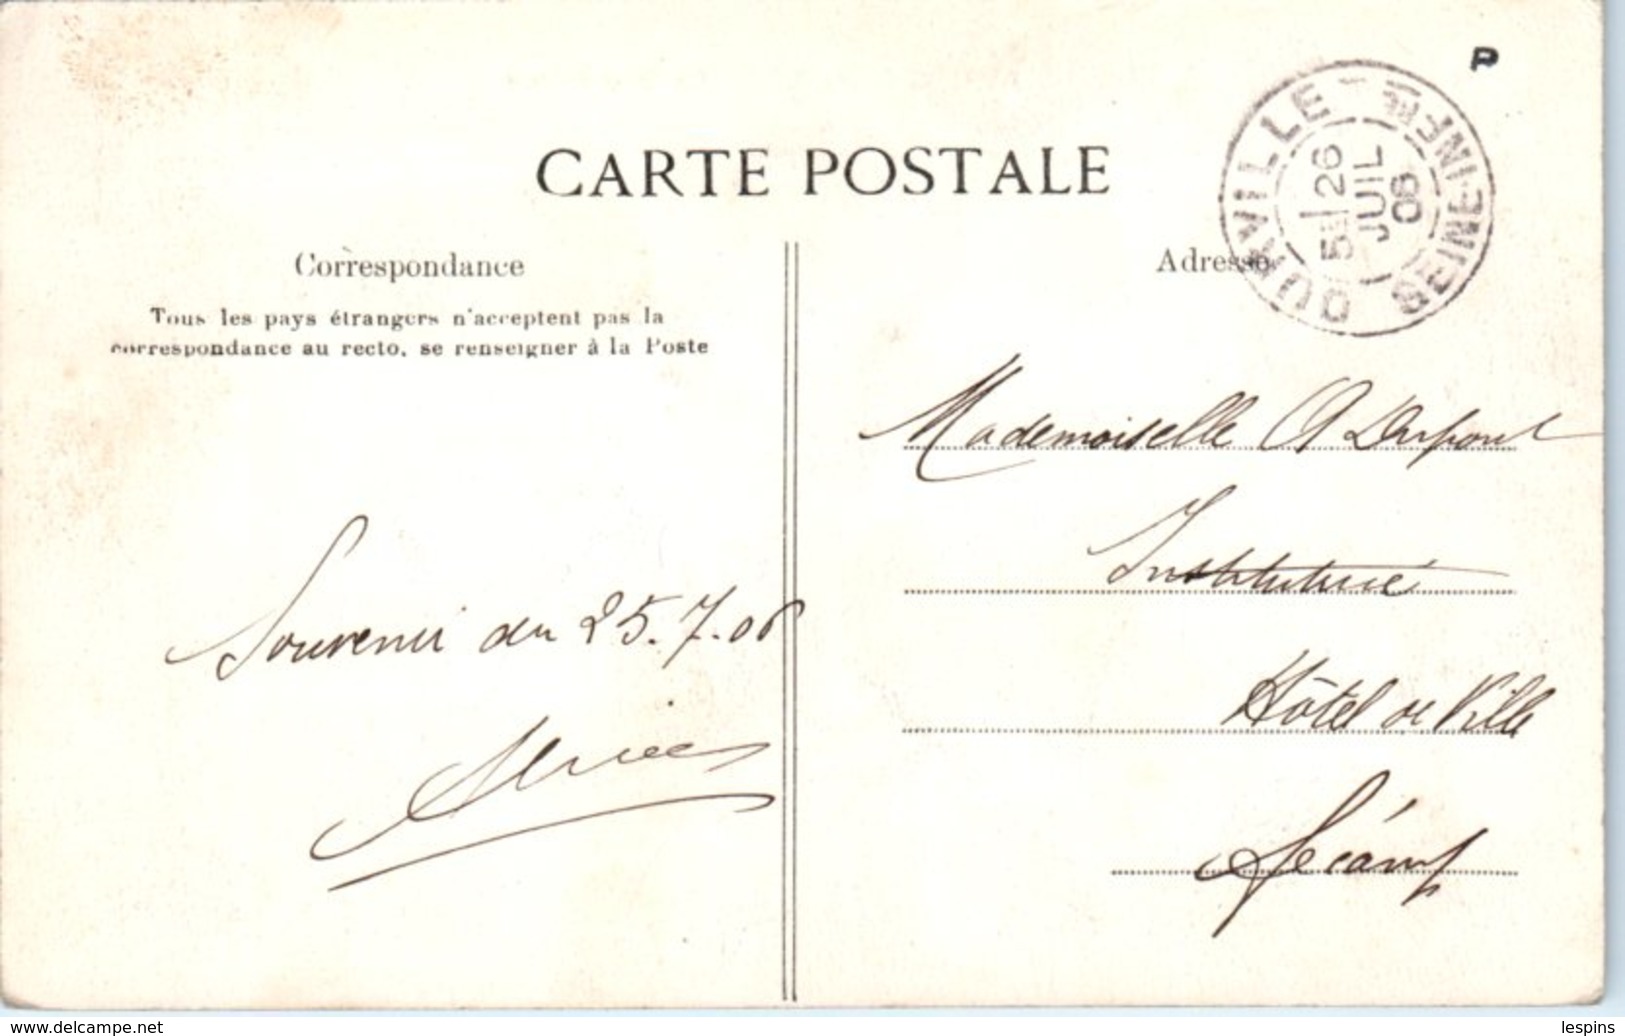 P
OURVILLE - SEINE-INFRE
5E 26
JUIL
06
CARTE POSTALE
Correspondance
Tous les pays étrangers n'acceptent pas la
correspondance au recto, se renseigner à la Poste
Souvenir du 25.7.06
Adresse
Mademoiselle A Dupont
Institutrice
Hôtel de Ville
Fécamp
www.delcampe.net
lespins